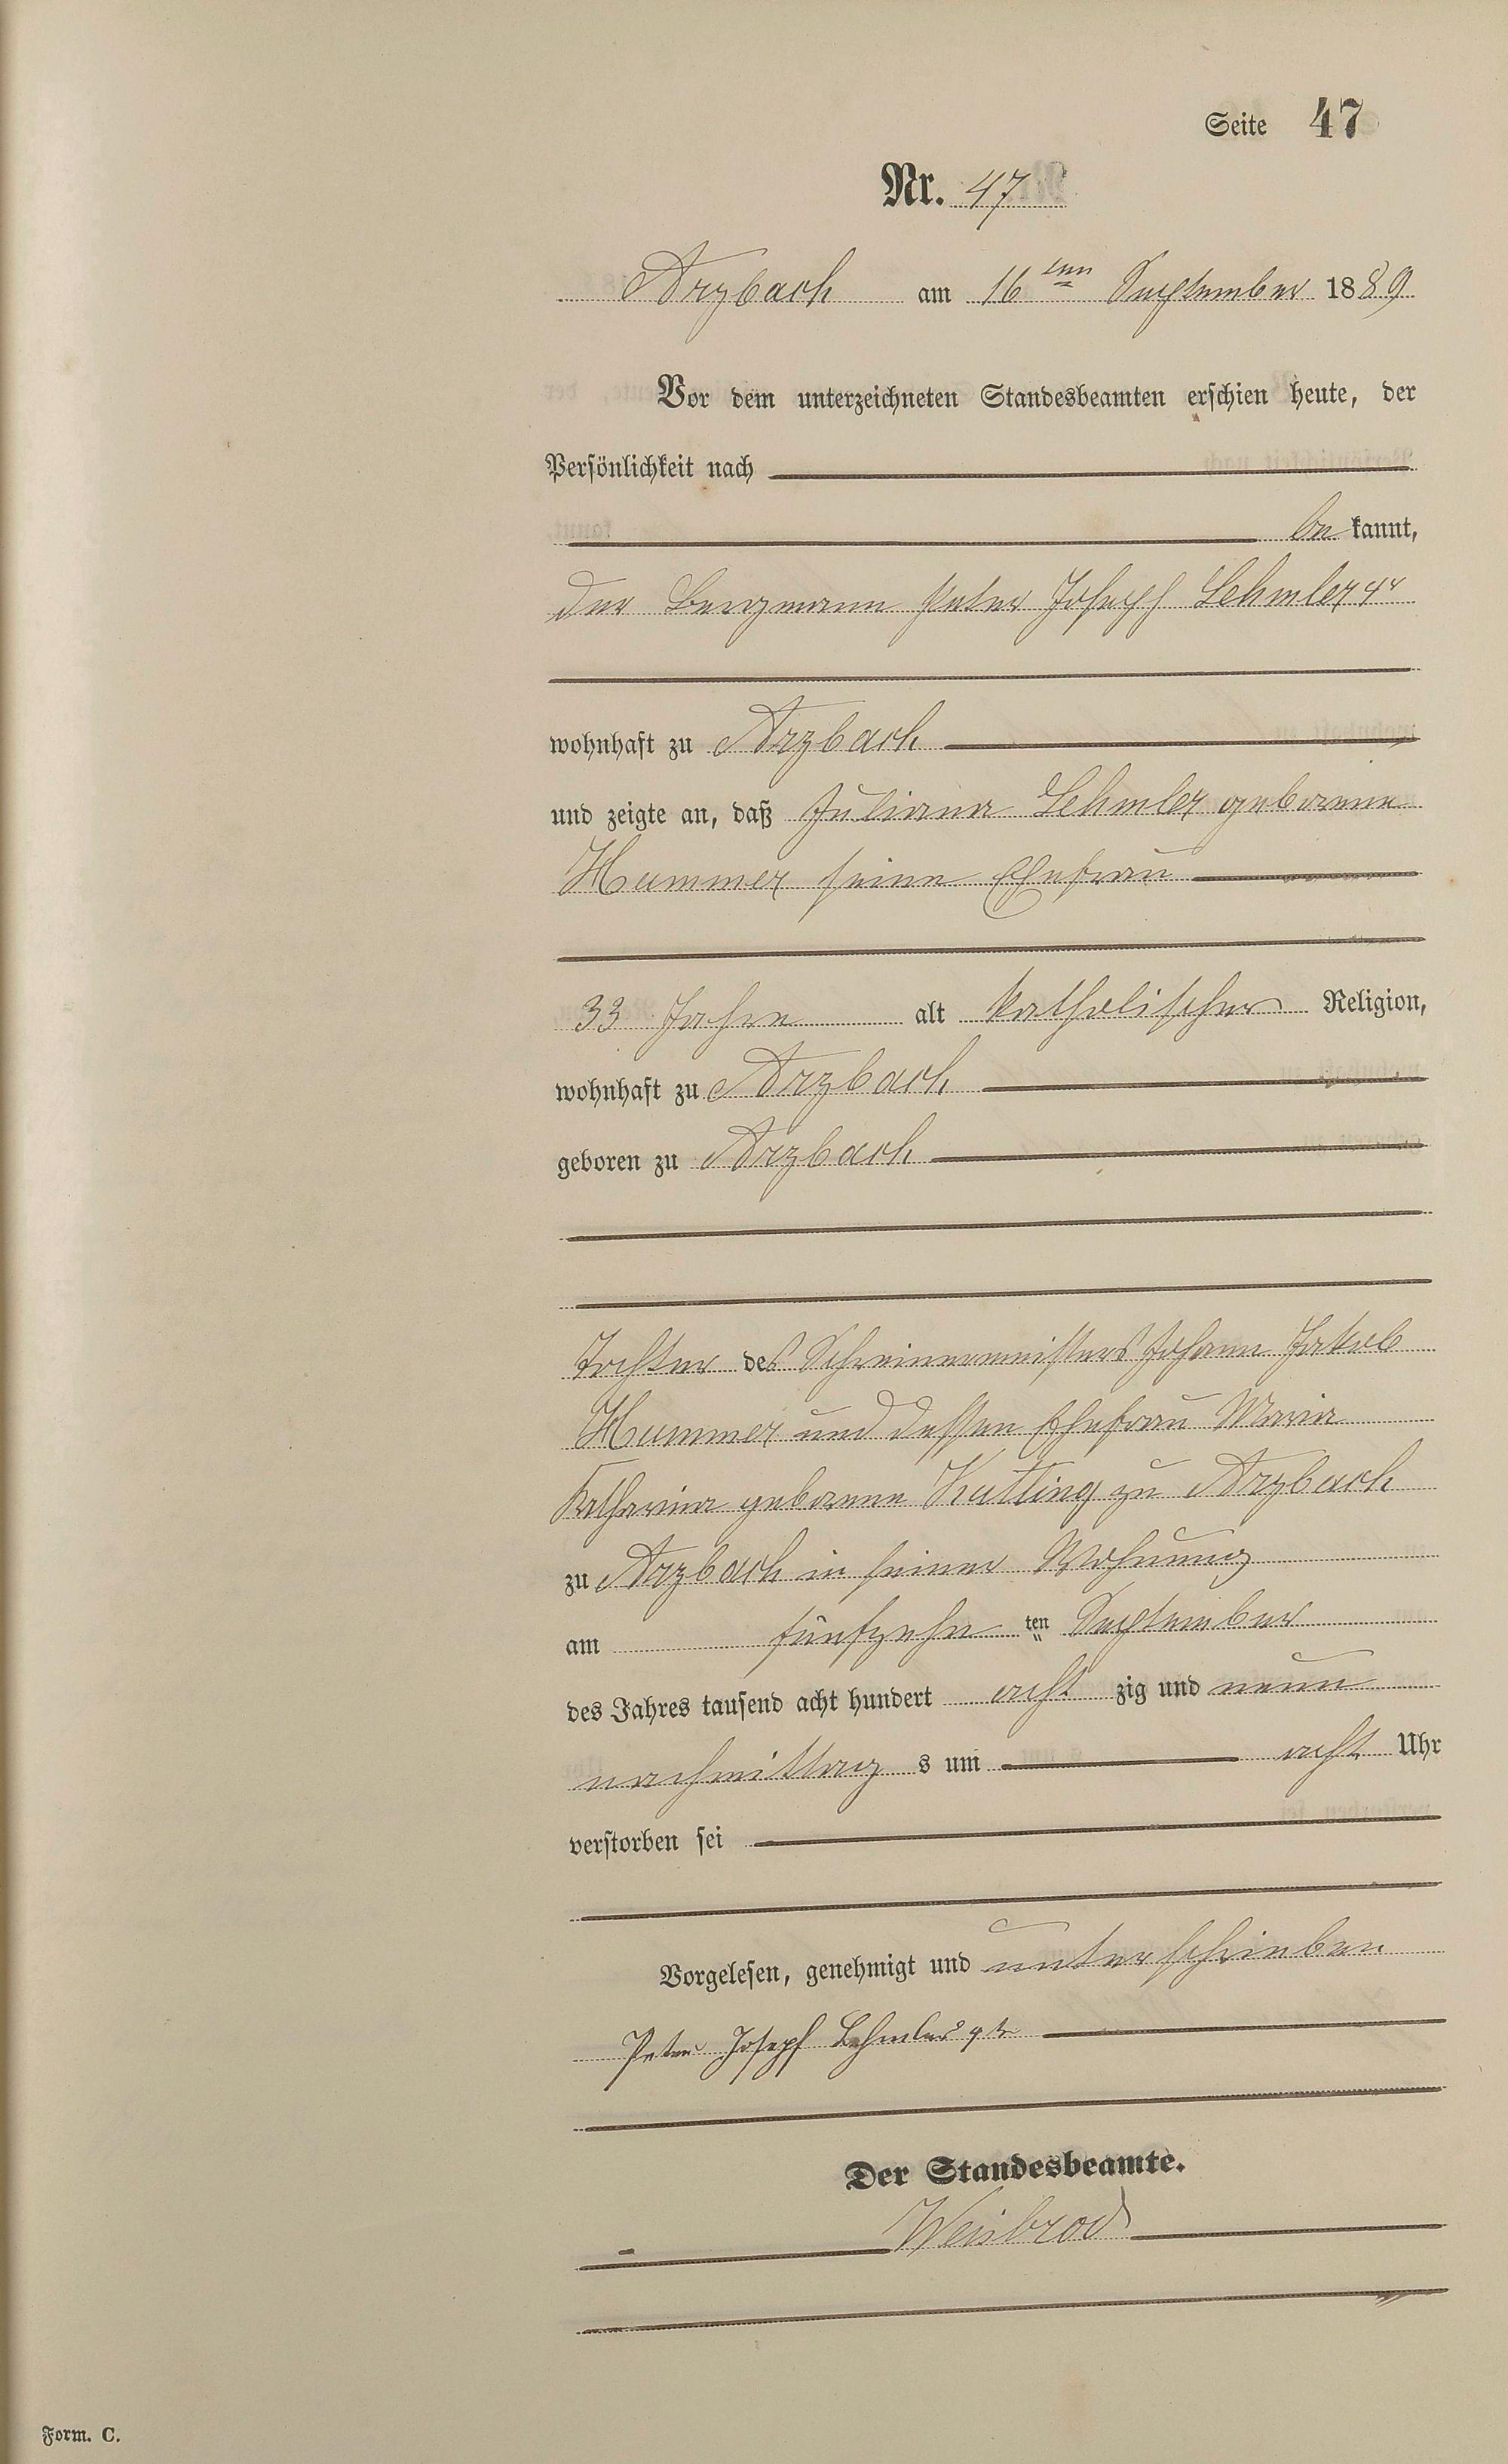 Seite 47
Nr. 47
Arzbach am 16ten September 1889
Vor dem unterzeichneten Standesbeamten erschien heute, der
Persönlichkeit nach
be kannt,
der Bergmann Peter Joseph Lehmler
wohnhaft zu Arzbach
und zeigte an, daß Juliana Lehmler geborene
Hummer seine Ehefrau
33 Jahre alt katholischer Religion,
wohnhaft zu Arzbach
geboren zu Arzbach
Tochter des Schreinermeisters Johann Jakob
Hummer und dessen Ehefrau Maria
Katharina geborene Kutting zu Arzbach
zu Arzbach in seiner Wohnung
am fünfzehn ten September
des Jahres tausend acht hundert acht zig und neun
nachmittag s um acht Uhr
verstorben sei
Vorgelesen, genehmigt und unterschrieben
Peter Josepf Lehmler
Der Standesbeamte.
Weisbrod
Form. C.